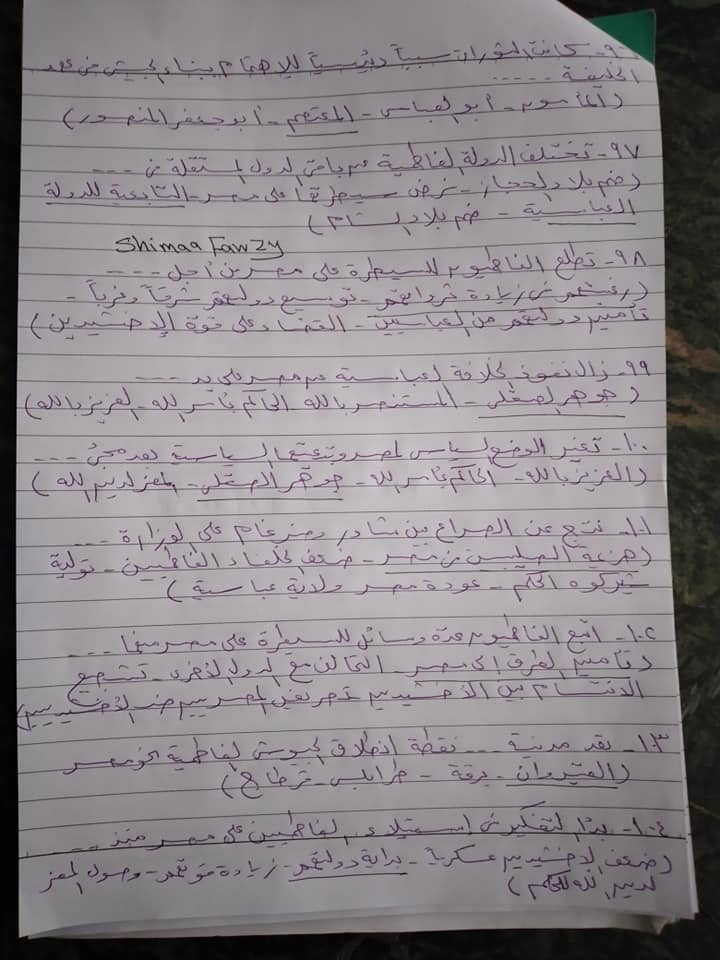 ٩٦- كانت الثورات سبباً رئيسياً للإهتمام ببناء الجيش فى عهد
الخليفة .....
(المأمون - أبو العباس - المعتصم - أبو جعفر المنصور)
٩٧- تختلف الدولة الفاطمية عن باقى الدول المستقلة فى ...
(ضم بلاد الحجاز - فرض سيطرتها على مصر - التابعية للدولة
العباسية - ضم بلاد الشام)
Shimaa Fawzy
٩٨- تطلع الفاطميون للسيطرة على مصر من أجل ....
(رغبتهم فى زيادة ثرواتهم - توسيع دولتهم شرقاً وغرباً -
تأمين دولتهم من العباسيين - القضاء على قوة الإخشيدين)
٩٩- زال نفوذ الخلافة العباسية عن مصر على يد ....
(جوهر الصقلى - المستنصر بالله - الحاكم بأمر الله - العزيز بالله)
١٠٠- تغير الوضع السياسى لمصر وتبعيتها السياسية بعد مجئ ....
(العزيز بالله - الحاكم بأمر الله - جوهر الصقلى - المعز لدين الله)
١٠١- نتج عن الصراع بين شاور وضرغام على الوزارة ...
(هزيمة الصليبين فى مصر - ضعف الخلفاء الفاطميين - تولية
شيركوه الحكم - عودة مصر ولاية عباسية)
١٠٢- اتبع الفاطميون عدة وسائل للسيطرة على مصر منها ...
(تأمين الطرق إلى مصر - التحالف مع الدول الأخرى - تشجيع
الانقسام بين الأخشيديين - تحريض المصريين ضد الأخشيديين)
١٠٣- تعد مدينة ... نقطة انطلاق الجيوش الفاطمية نحو مصر
(القيروان - برقة - طرابلس - قرطاج)
١٠٤- بدأ التفكير فى إستيلاء الفاطميين على مصر منذ ...
(ضعف الإخشيديين عسكرياً - بداية دولتهم - زيادة قوتهم - وصول المعز
لدين الله للحكم)